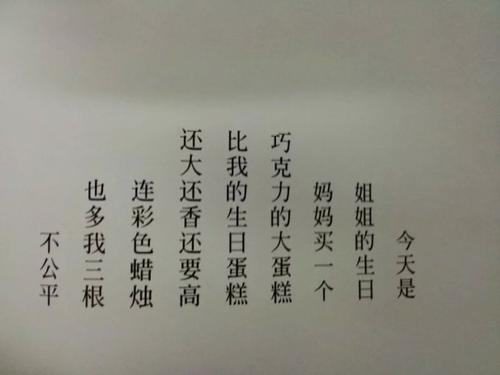 今天是
姐姐的生日
妈妈买一个
巧克力的大蛋糕
比我的生日蛋糕
还大还香还要高
连彩色蜡烛
也多我三根
不公平